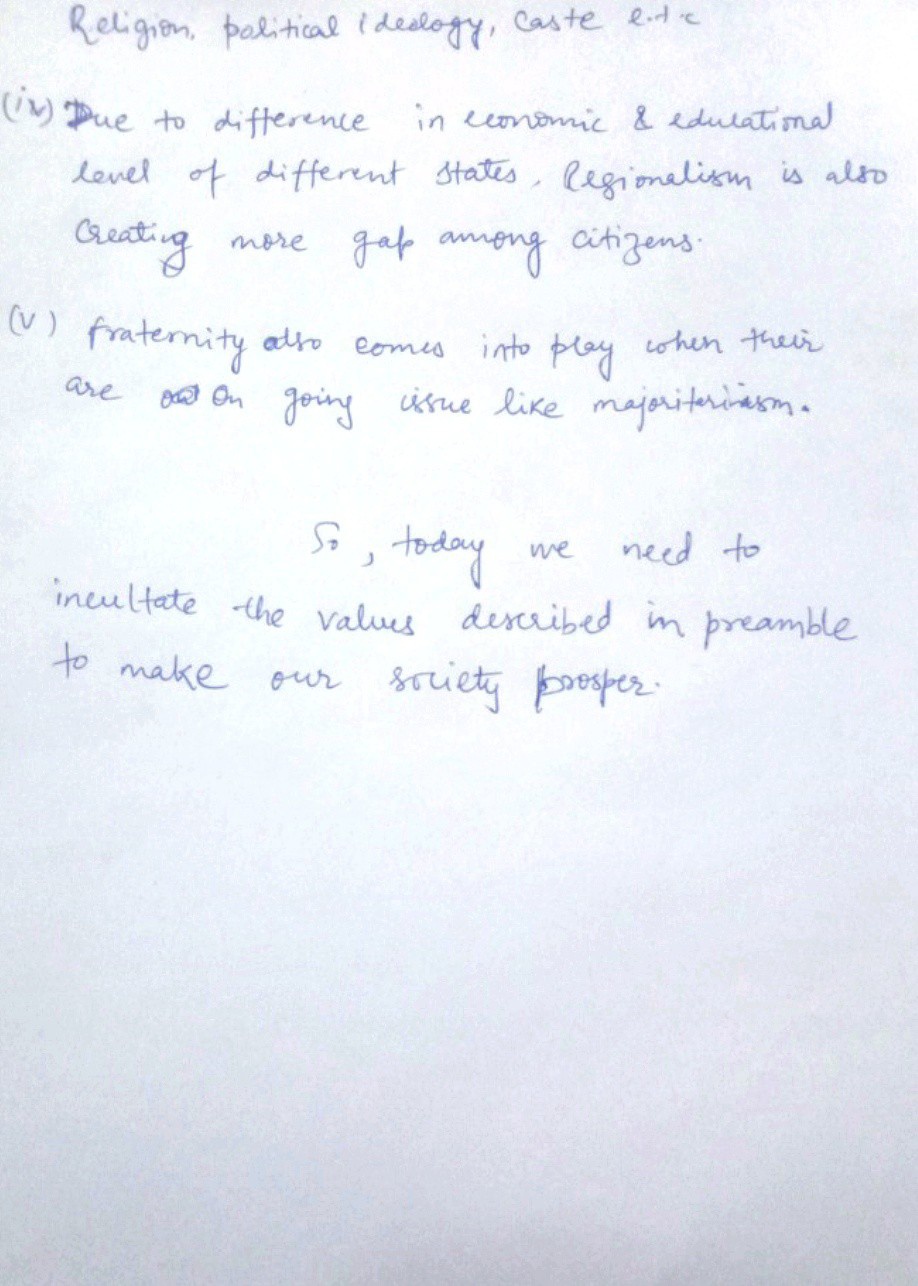 Religion, political ideology, Caste e.t.c
(iv) Due to difference in economic & educational
level of different states, Regionalism is also
Creating more gap among citizens.
(v) fraternity also comes into play when their
are on going issue like majoriterinism.
So, today we need to
incultate the values described in preamble
to make our society prosper.